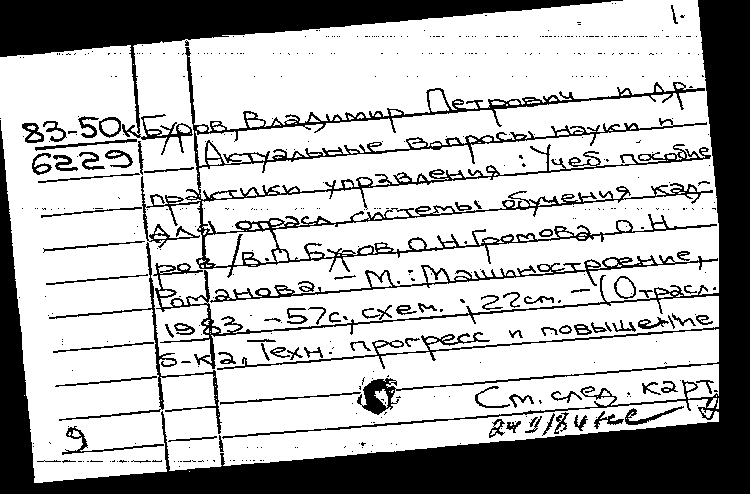 1.
83-50к Буров, Владимир Петрович и др.
6229 Актуальные вопросы науки и
практики управления : Учеб. пособие
для отрасл. системы обучения кад-
ров / В.П. Буров, О.Н. Громова, О.Н.
Романова. – М. : Машиностроение,
1983. – 57с., схем. ; 22см. – (Отрасл.
б-ка, Техн. прогресс и повышение
См. след. карт.
9